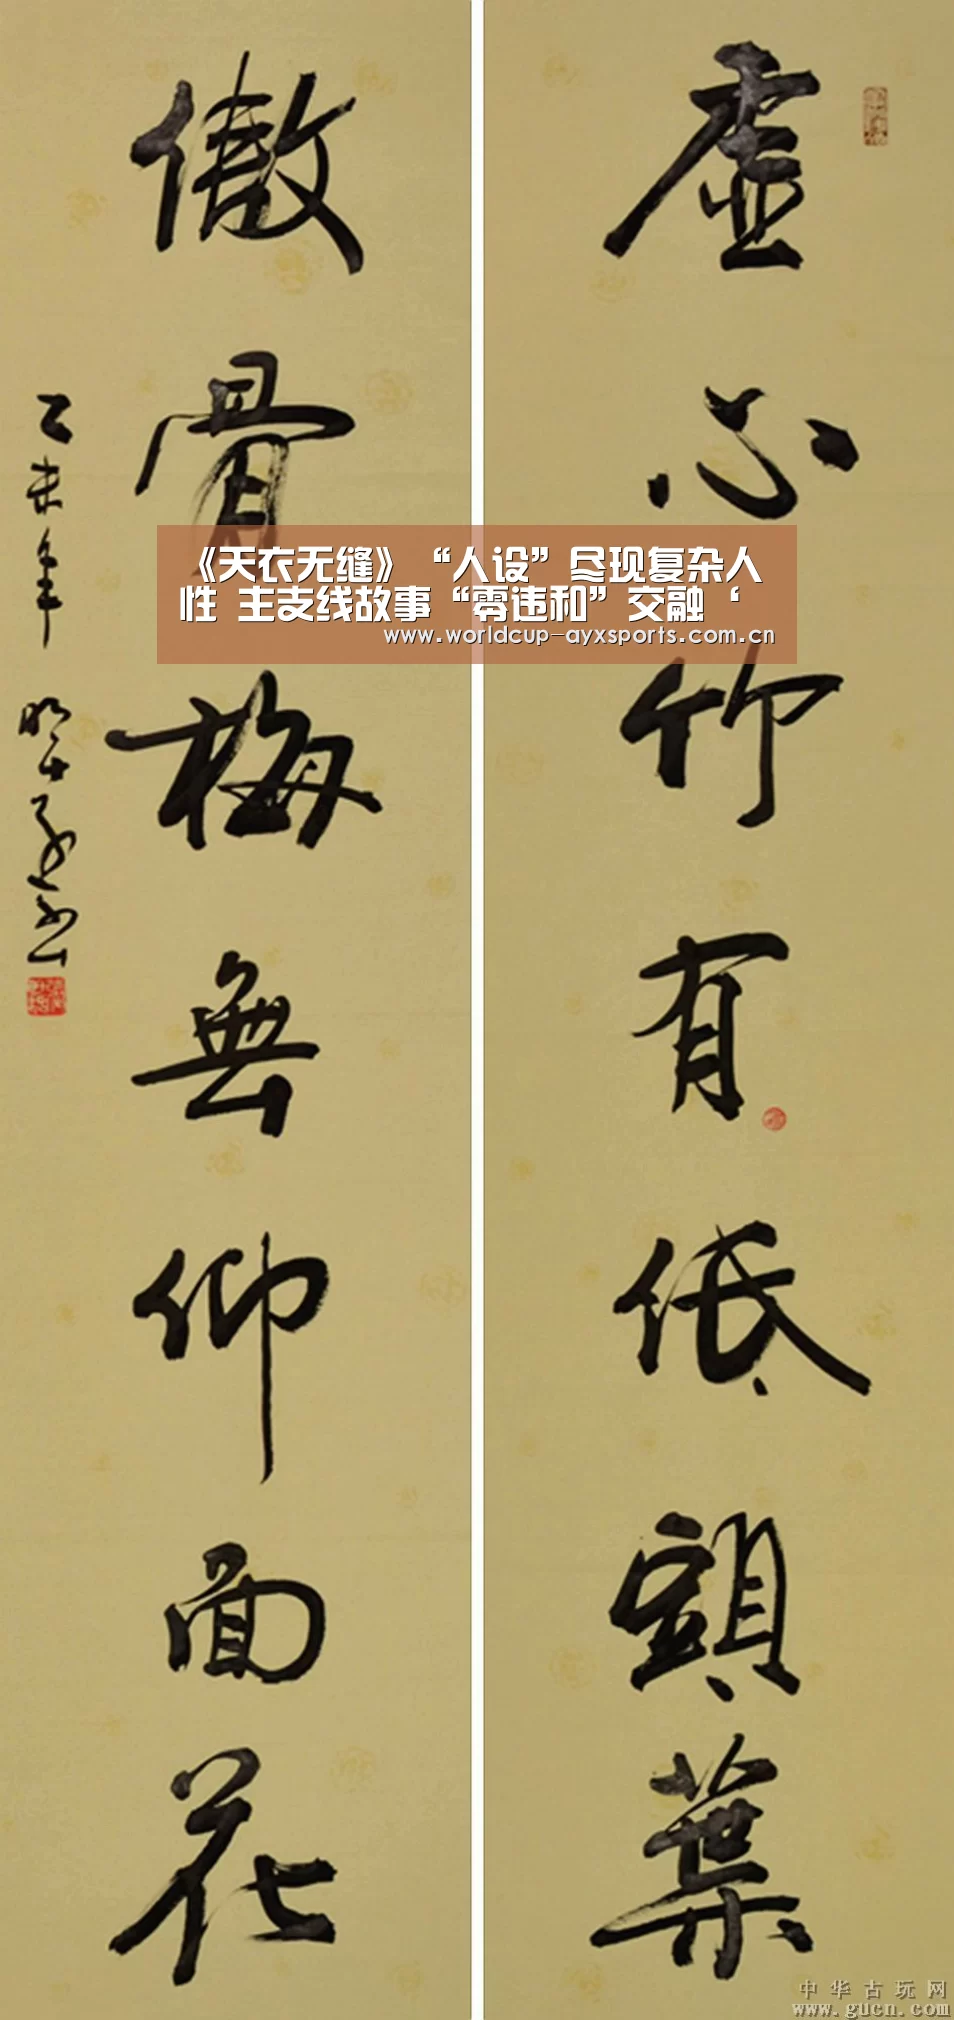 虚心竹有低頭葉
傲骨梅無仰面花
乙未年
《天衣无缝》“人设”尽现复杂人
性 主支线故事“零违和”交融‘
www.worldcup-ayxsports.com.cn
中华古玩网
www.gucn.com